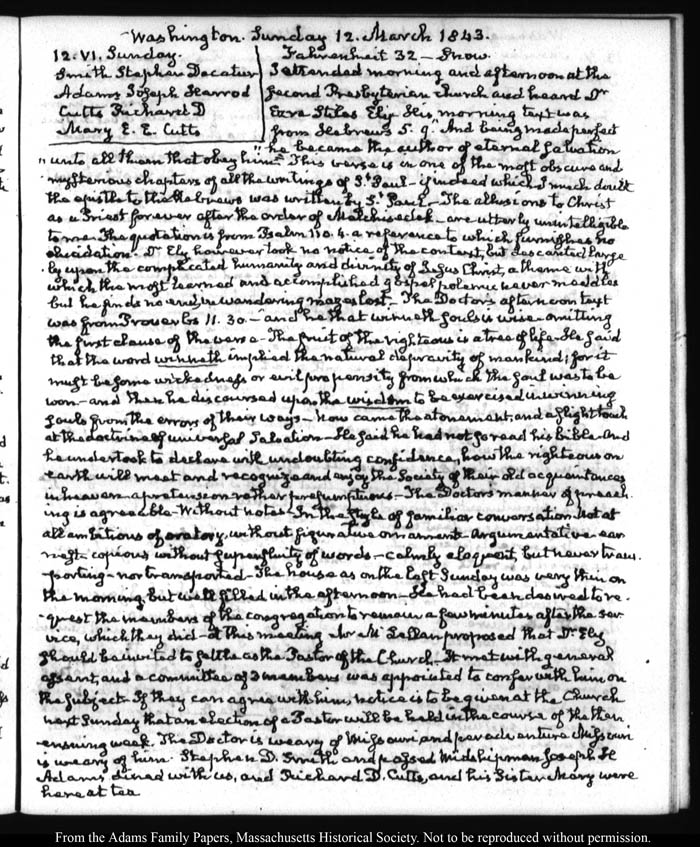 Washington. Sunday 12. March 1843.
12. VI. Sunday.
Smith Stephen Decatur
Adams Joseph Harrod
Cutts Richard D
Mary E. E. Cutts
Fahrenheit 32 — Snow.
I attended morning and afternoon at the
second Presbyterian Church and heard Dr
Ezra Stiles Ely. His morning text was
from Hebrews 5. 9. And being made perfect
"he became the author of eternal salvation
"unto all them that obey him" This verse is in one of the most obscure and
mysterious chapters of all the writings of St. Paul — if indeed which I much doubt
the epistle to the Hebrews was written by St. Paul — The allusions to Christ
as a Priest forever after the order of Melchisedek — are utterly unintelligible
to me. The quotation is from Psalm 110. 4. a reference to which furnishes no
elucidation. Dr Ely however took no notice of the context, but descanted large
ly upon the complicated humanity and divinity of Jesus Christ, a theme with
which the most learned and accomplished gospel polemic never meddles
but he finds no end, in wandering mazes lost — The Doctor's afternoon text
was from Proverbs 11. 30. — and he that winneth souls is wise — omitting
the first clause of the verse — The fruit of the righteous is a tree of life — He said
that the word winneth implied the natural depravity of mankind; for it
must be some wickedness or evil propensity from which the soul was to be
won — and then he discoursed upon the wisdom to be exercised in winning
souls from the errors of their ways — Now came the atonement, and a slight touch
at the doctrine of universal Salvation — He said he had not so read his bible — And
he undertook to declare with undoubting confidence, how the righteous on
earth will meet and recognize and enjoy the Society of their old acquaintances
in heaven — a pretension rather presumptuous — The Doctors manner of preach
ing is agreeable — Without notes — In the style of familiar conversation. Not at
all ambitious of oratory, without figurative ornament — argumentative — ear
nest — copious without superfluity of words — calmly eloquent, but never trans
porting — nor transported — The house as on the last Sunday was very thin on
the morning, but well filled in the afternoon — He had been desired to re
quest the members of the congregation to remain a few minutes after the ser
vice, which they did — at this meeting proposed that Dr. Ely
should be invited to settle as the Pastor of the Church — It met with general
assent, and a committee of 3 members was appointed to confer with him on
the subject. If they can agree with him, notice is to be given at the Church
next Sunday that an election of a Pastor will be held in the course of the then
ensuing week. The Doctor is weary of Missouri and peradventure Missouri
is weary of him. Stephen D. Smith and passed Midshipman Joseph H
Adams dined with us, and Richard D. Cutts, and his Sister Mary were
here at tea
From the Adams Family Papers, Massachusetts Historical Society. Not to be reproduced without permission.